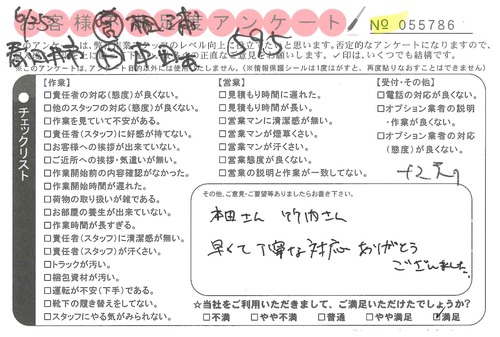 お客様満足度アンケート
No 055786
このアンケートは、弊社作業スタッフのレベル向上に役立てたいと思います。否定的なアンケートになりますので、
✓印は、いくつでも結構です。
※このアンケートは、アンケート目的以外には使用いたしません。(※情報保護シールは1度はがすと、再度貼りなおすことはできません)
チェックリスト
【作業】
□責任者の対応(態度)が良くない。
□他のスタッフの対応(態度)が良くない。
□作業を見ていて不安がある。
□責任者(スタッフ)に好感が持てない。
□お客様への挨拶が出来ていない。
□ご近所への挨拶・気遣いが無い。
□作業開始前の内容確認がなかった。
□作業開始時間が遅れた。
□荷物の取り扱いが雑である。
□お部屋の養生が出来ていない。
□作業時間が長すぎる。
□責任者(スタッフ)に清潔感が無い。
□責任者(スタッフ)が汗くさい。
□トラックが汚い。
□梱包資材が汚い。
□運転が不安(下手)である。
□靴下の履き替えをしてない。
□スタッフにやる気がみられない。
【営業】
□見積もり時間に遅れた。
□見積もり時間が長い。
□営業マンに清潔感が無い。
□営業マンが煙草くさい。
□営業マンが汗くさい。
□営業態度が良くない。
□営業の説明と作業が一致してない。
【受付・その他】
□電話の対応が良くない。
□オプション業者の説明
・作業が良くない。
□オプション業者の対応
(態度)が良くない。
+2点
その他、ご意見・ご要望等ありましたらお書き下さい。
本田さん 竹内さん
早くて丁寧な対応ありがとう
ございました。
☆当社をご利用いただきまして、ご満足いただけたでしょうか?
□不満 □やや不満 □普通 □やや満足 ☑満足